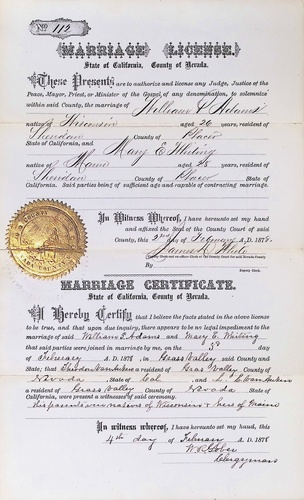 No 112
MARRIAGE LICENSE.
State of California, County of Nevada.
These Presents are to authorize and license any Judge, Justice of the
Peace, Mayor, Priest, or Minister of the Gospel of any denomination, to solemnize
within said County, the marriage of William F Adams
native of Wisconsin aged 26 years, resident of
Sheridan County of Placer
State of California, and Mary E Whiting
native of Maine aged 25 years, resident of
Sheridan County of Placer State of
California. Said parties being of sufficient age and capable of contracting marriage.
In Witness Whereof, I have hereunto set my hand
and affixed the Seal of the County Court of said
County, this 2nd day of February A. D. 1878
James
County Clerk and ex-officio Clerk of the County Court for said Nevada County
By
Deputy Clerk.
MARRIAGE CERTIFICATE.
State of California, County of Nevada.
I Hereby Certify that I believe the facts stated in the above license
to be true, and that upon due inquiry, there appears to be no legal impediment to the marriage
of said William F. Adams and Mary E. Whiting
that said parties were joined in marriage by me, on the 3d day
of February A. D. 1878, in Grass Valley said County and
State; that a resident of Grass Valley County of
Nevada State of Cal and L.
a resident of Grass Valley County of Nevada State of
California, were present as witnesses of said ceremony.
His parents were natives of Wisconsin & hers of Maine
In witness whereof, I have hereunto set my hand, this
4th day of February A. D. 1878
Clergyman